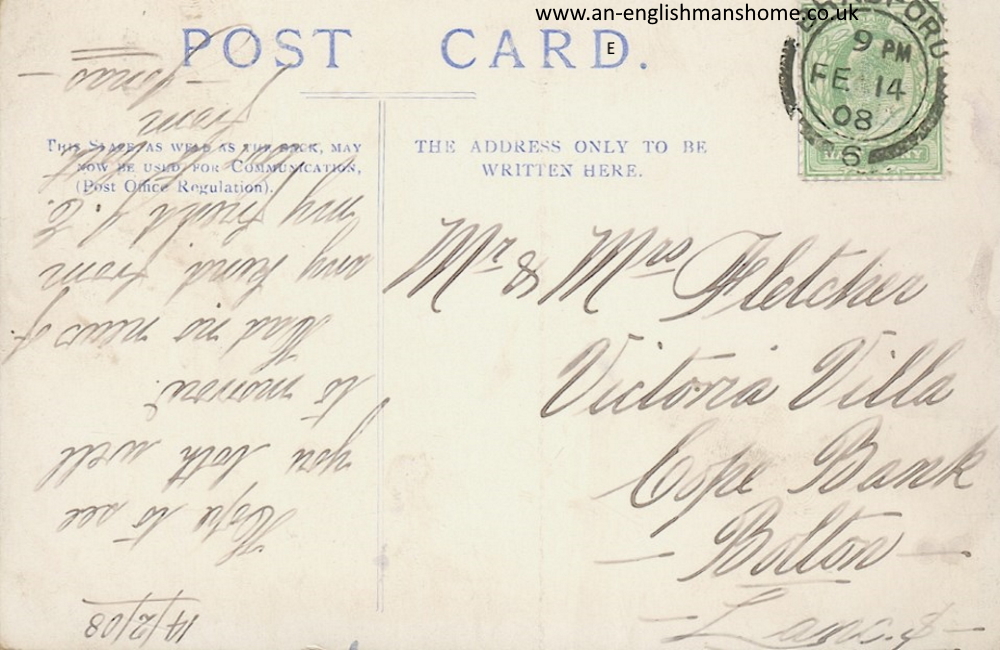 www.an-englishmanshome.co.uk
POST CARD.
E
9 PM
FE 14
08
6
THIS SPACE, AS WELL AS THE BACK, MAY
NOW BE USED FOR COMMUNICATION,
(Post Office Regulation).
THE ADDRESS ONLY TO BE
WRITTEN HERE.
Mr & Mrs Fletcher
Victoria Villa
Cope Bank
— Bolton —
— Lancs. —
14/2/08
Hope to see
you both well
to morrow.
Had no news of
any kind from
my friend J. E.
from